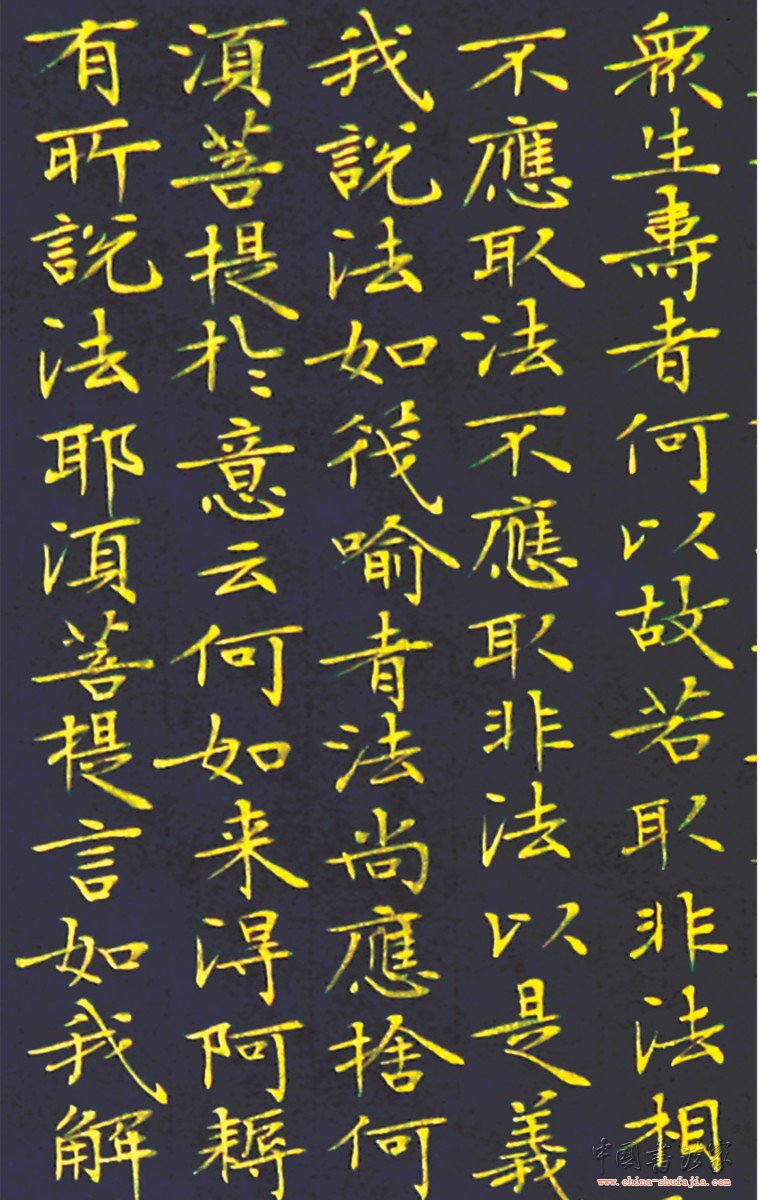 眾生壽者何以故若取非法相
不應取法不應取非法以是義
我說法如筏喻者法尚應捨何
須菩提於意云何如来得阿耨
有所說法耶須菩提言如我解
中國書法家
www.china-shufajia.com